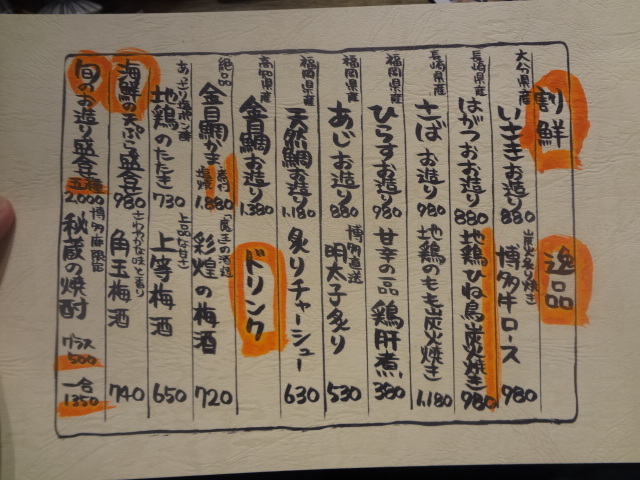 割鮮
大分県産
いさきお造り 880
長崎県産
はがつおお造り 880
長崎県産
さばお造り 980
福岡県産
ひらすお造り 980
福岡県産
あじお造り 880
福岡県産
天然鯛お造り 1,180
高知県産
金目鯛お造り 1,380
絶品
金目鯛かま塩焼 1,880
あっさり塩ポン酢
地鶏のたたき 730
海鮮の天ぷら盛合せ 980
旬のお造り盛合せ 五種 2,000
逸品
炭火炙り焼き
博多牛ロース 980
地鶏ひね鳥炭火焼き 980
地鶏のもも炭火焼き 1,180
甘辛の一品
鶏肝煮 380
博多直送
明太子炙り 530
炙りチャーシュー 630
ドリンク
彩煌の梅酒 720
上品な甘さ
上等梅酒 650
さわやかな味と香り
角玉梅酒 740
博多庫限定
秘蔵の焼酎 グラス 500 一合 1350